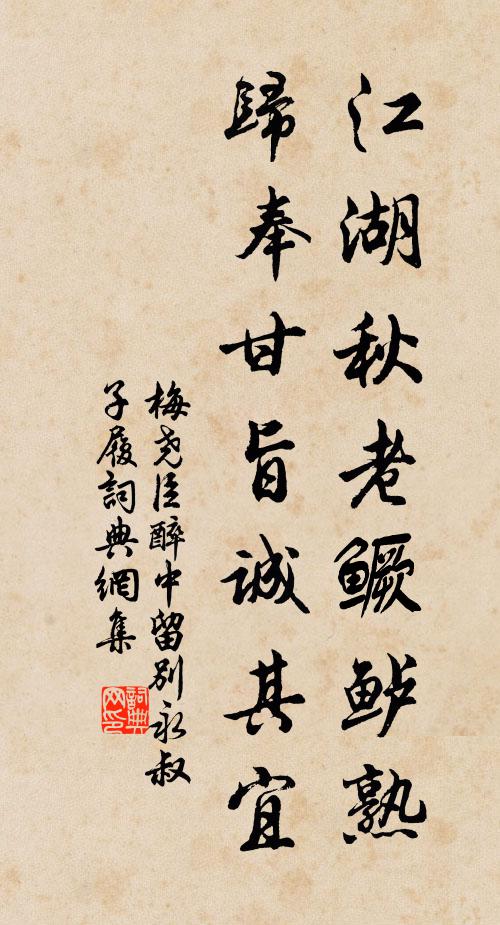 江湖秋老鳜鲈熟
歸奉甘旨誠其宜
梅尧臣醉中留别永叔
子履詞典網集
詞典网印